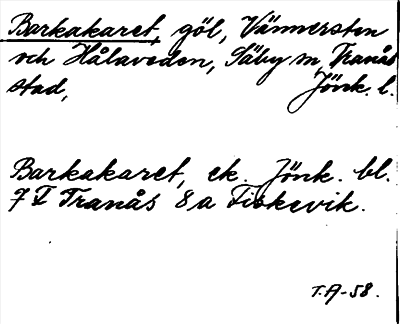 Barkakaret, göl, Vännersten
och Hålaveden, Säby sn, Tranås
stad, Jönk. l.
Barkakaret, ek. Jönk. bl.
7 I Tranås 8a Fiskevik.
T.A-58.